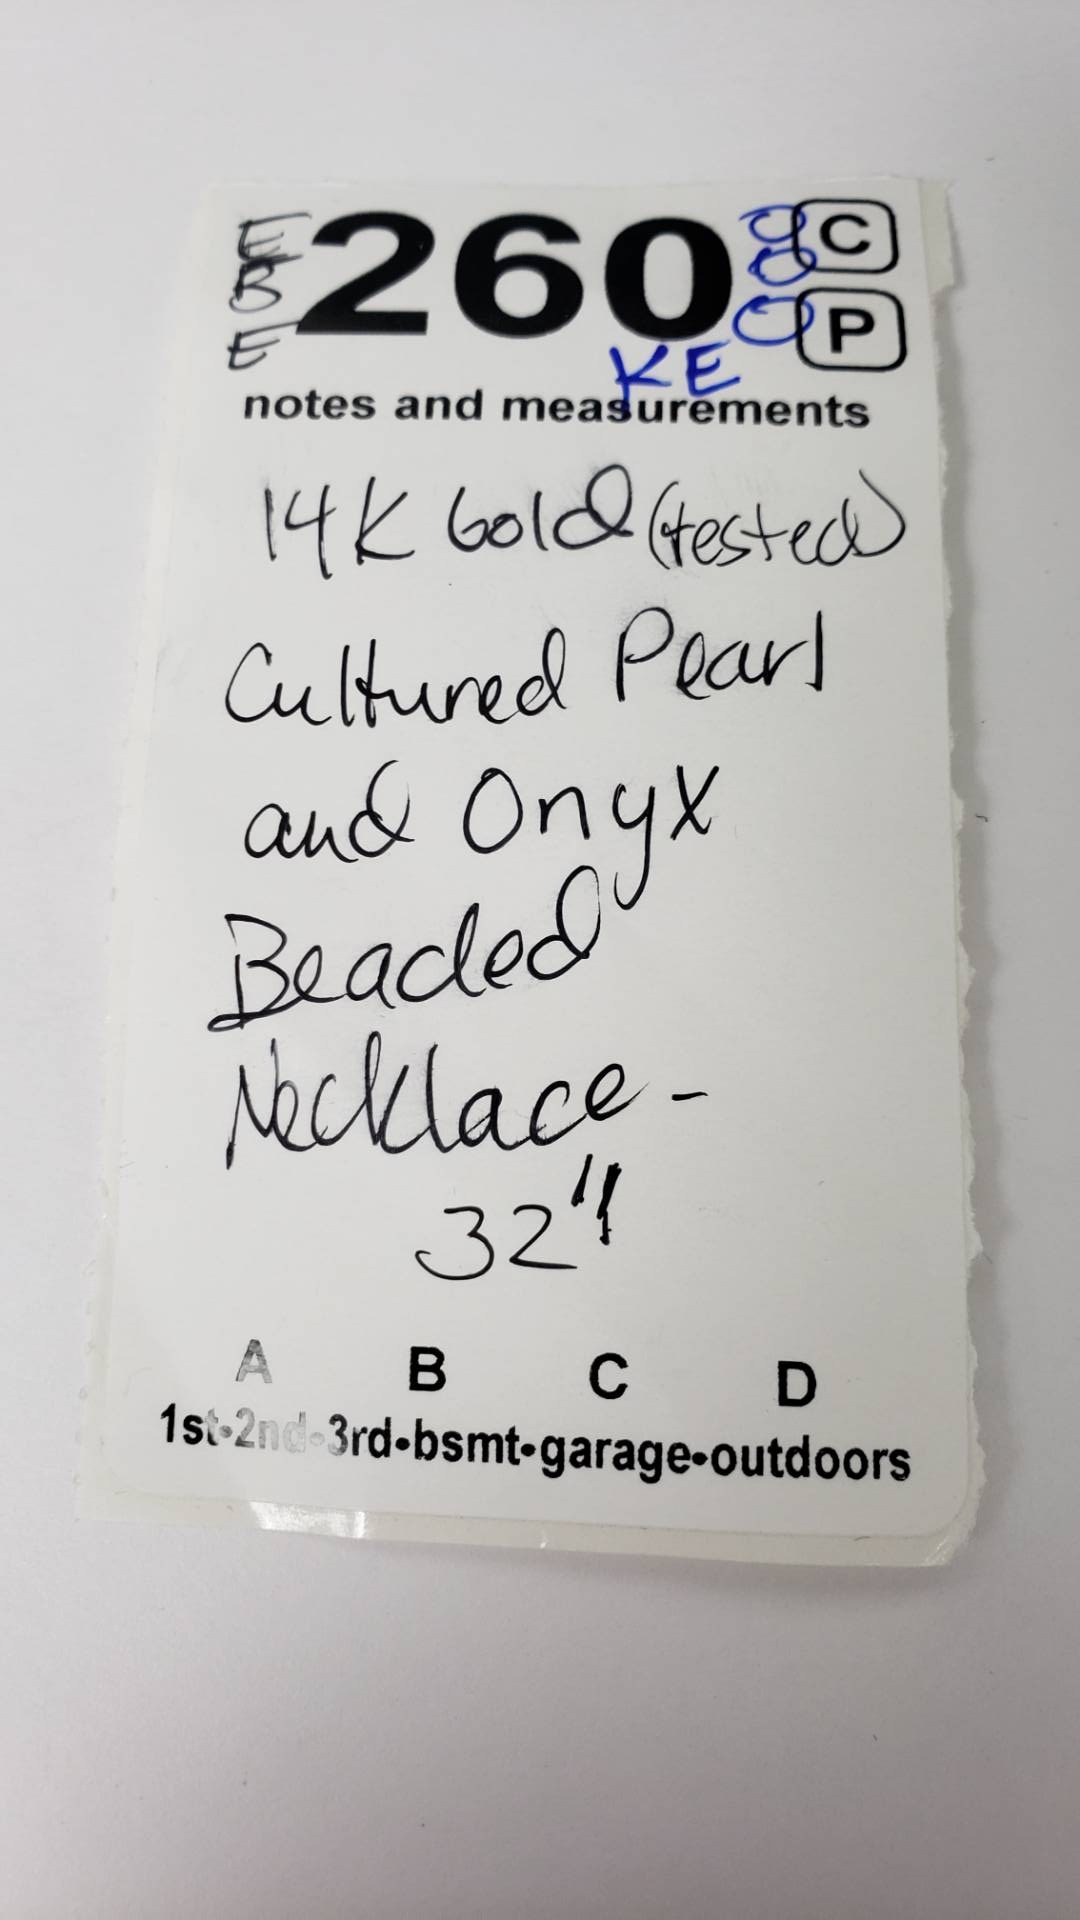 EBE 260 C
P
KE
notes and measurements
14K Gold (tested)
Cultured Pearl
and Onyx
Beaded
Necklace -
32"
A B C D
1st•2nd•3rd•bsmt•garage•outdoors